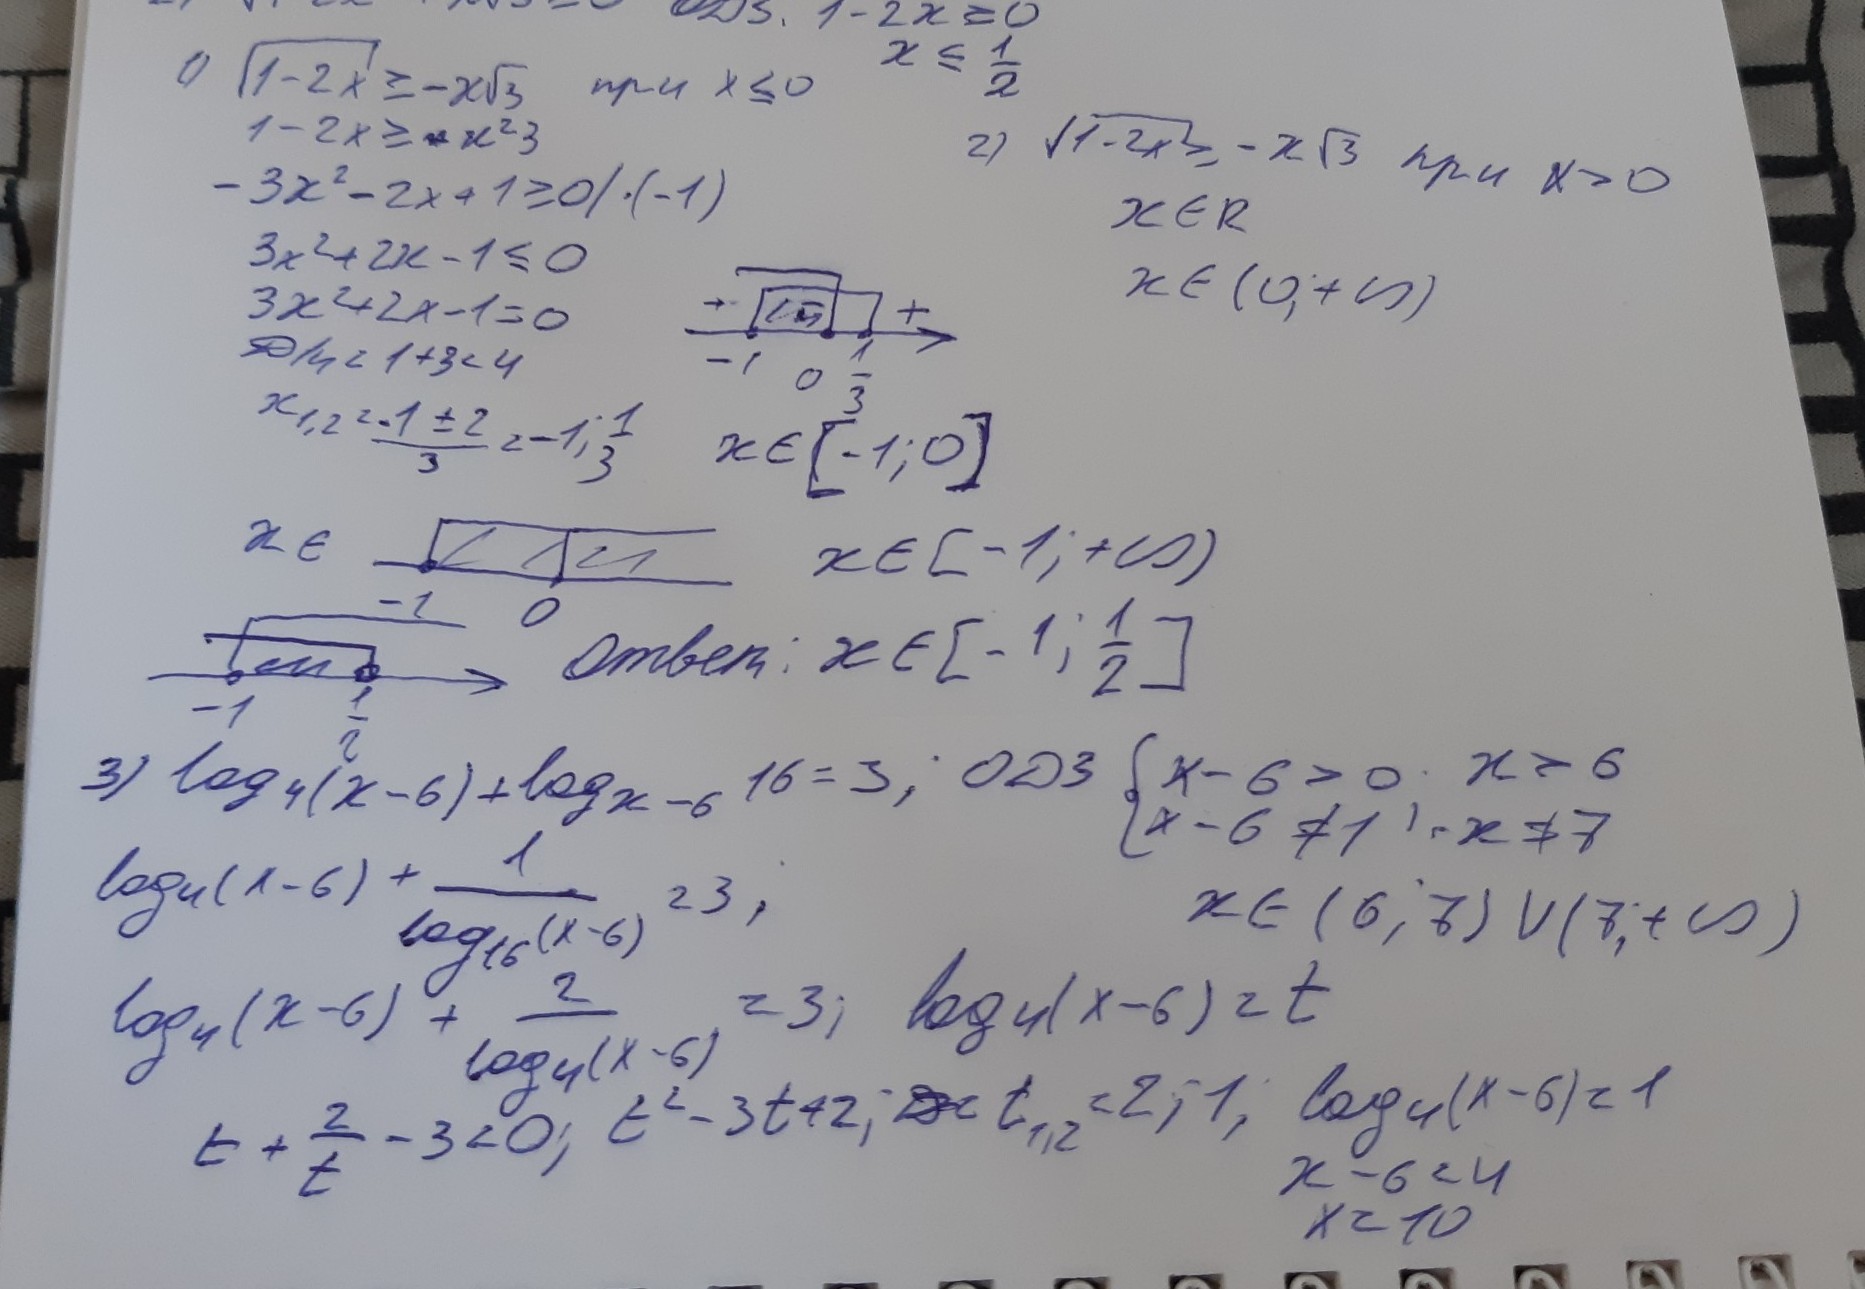 ОДЗ. 1-2x≥0
x ≤ 1/2
1) √(1-2x) ≥ -x√3 при x≤0
1-2x ≥ x²3
-3x²-2x+1≥0 /·(-1)
3x²+2x-1≤0
3x²+2x-1=0
D/4=1+3=4
x₁,₂ = (-1±2)/3 = -1; 1/3
+ +
-1 0 1/3
x∈[-1;0]
2) √(1-2x) ≥ -x√3 при x>0
x∈R
x∈(0;+∞)
x∈
-1 0
x∈[-1;+∞)
-1 1/2
Ответ: x∈[-1; 1/2]
3) log₄(x-6)+logₓ₋₆ 16=3; ОДЗ {x-6>0; x>6
{x-6≠1; x≠7
x∈(6;7)∪(7;+∞)
log₄(x-6) + 1/log₁₆(x-6) =3;
log₄(x-6) + 2/log₄(x-6) =3; log₄(x-6)=t
t + 2/t -3=0; t²-3t+2; t₁,₂=2;1; log₄(x-6)=1
x-6=4
x=10